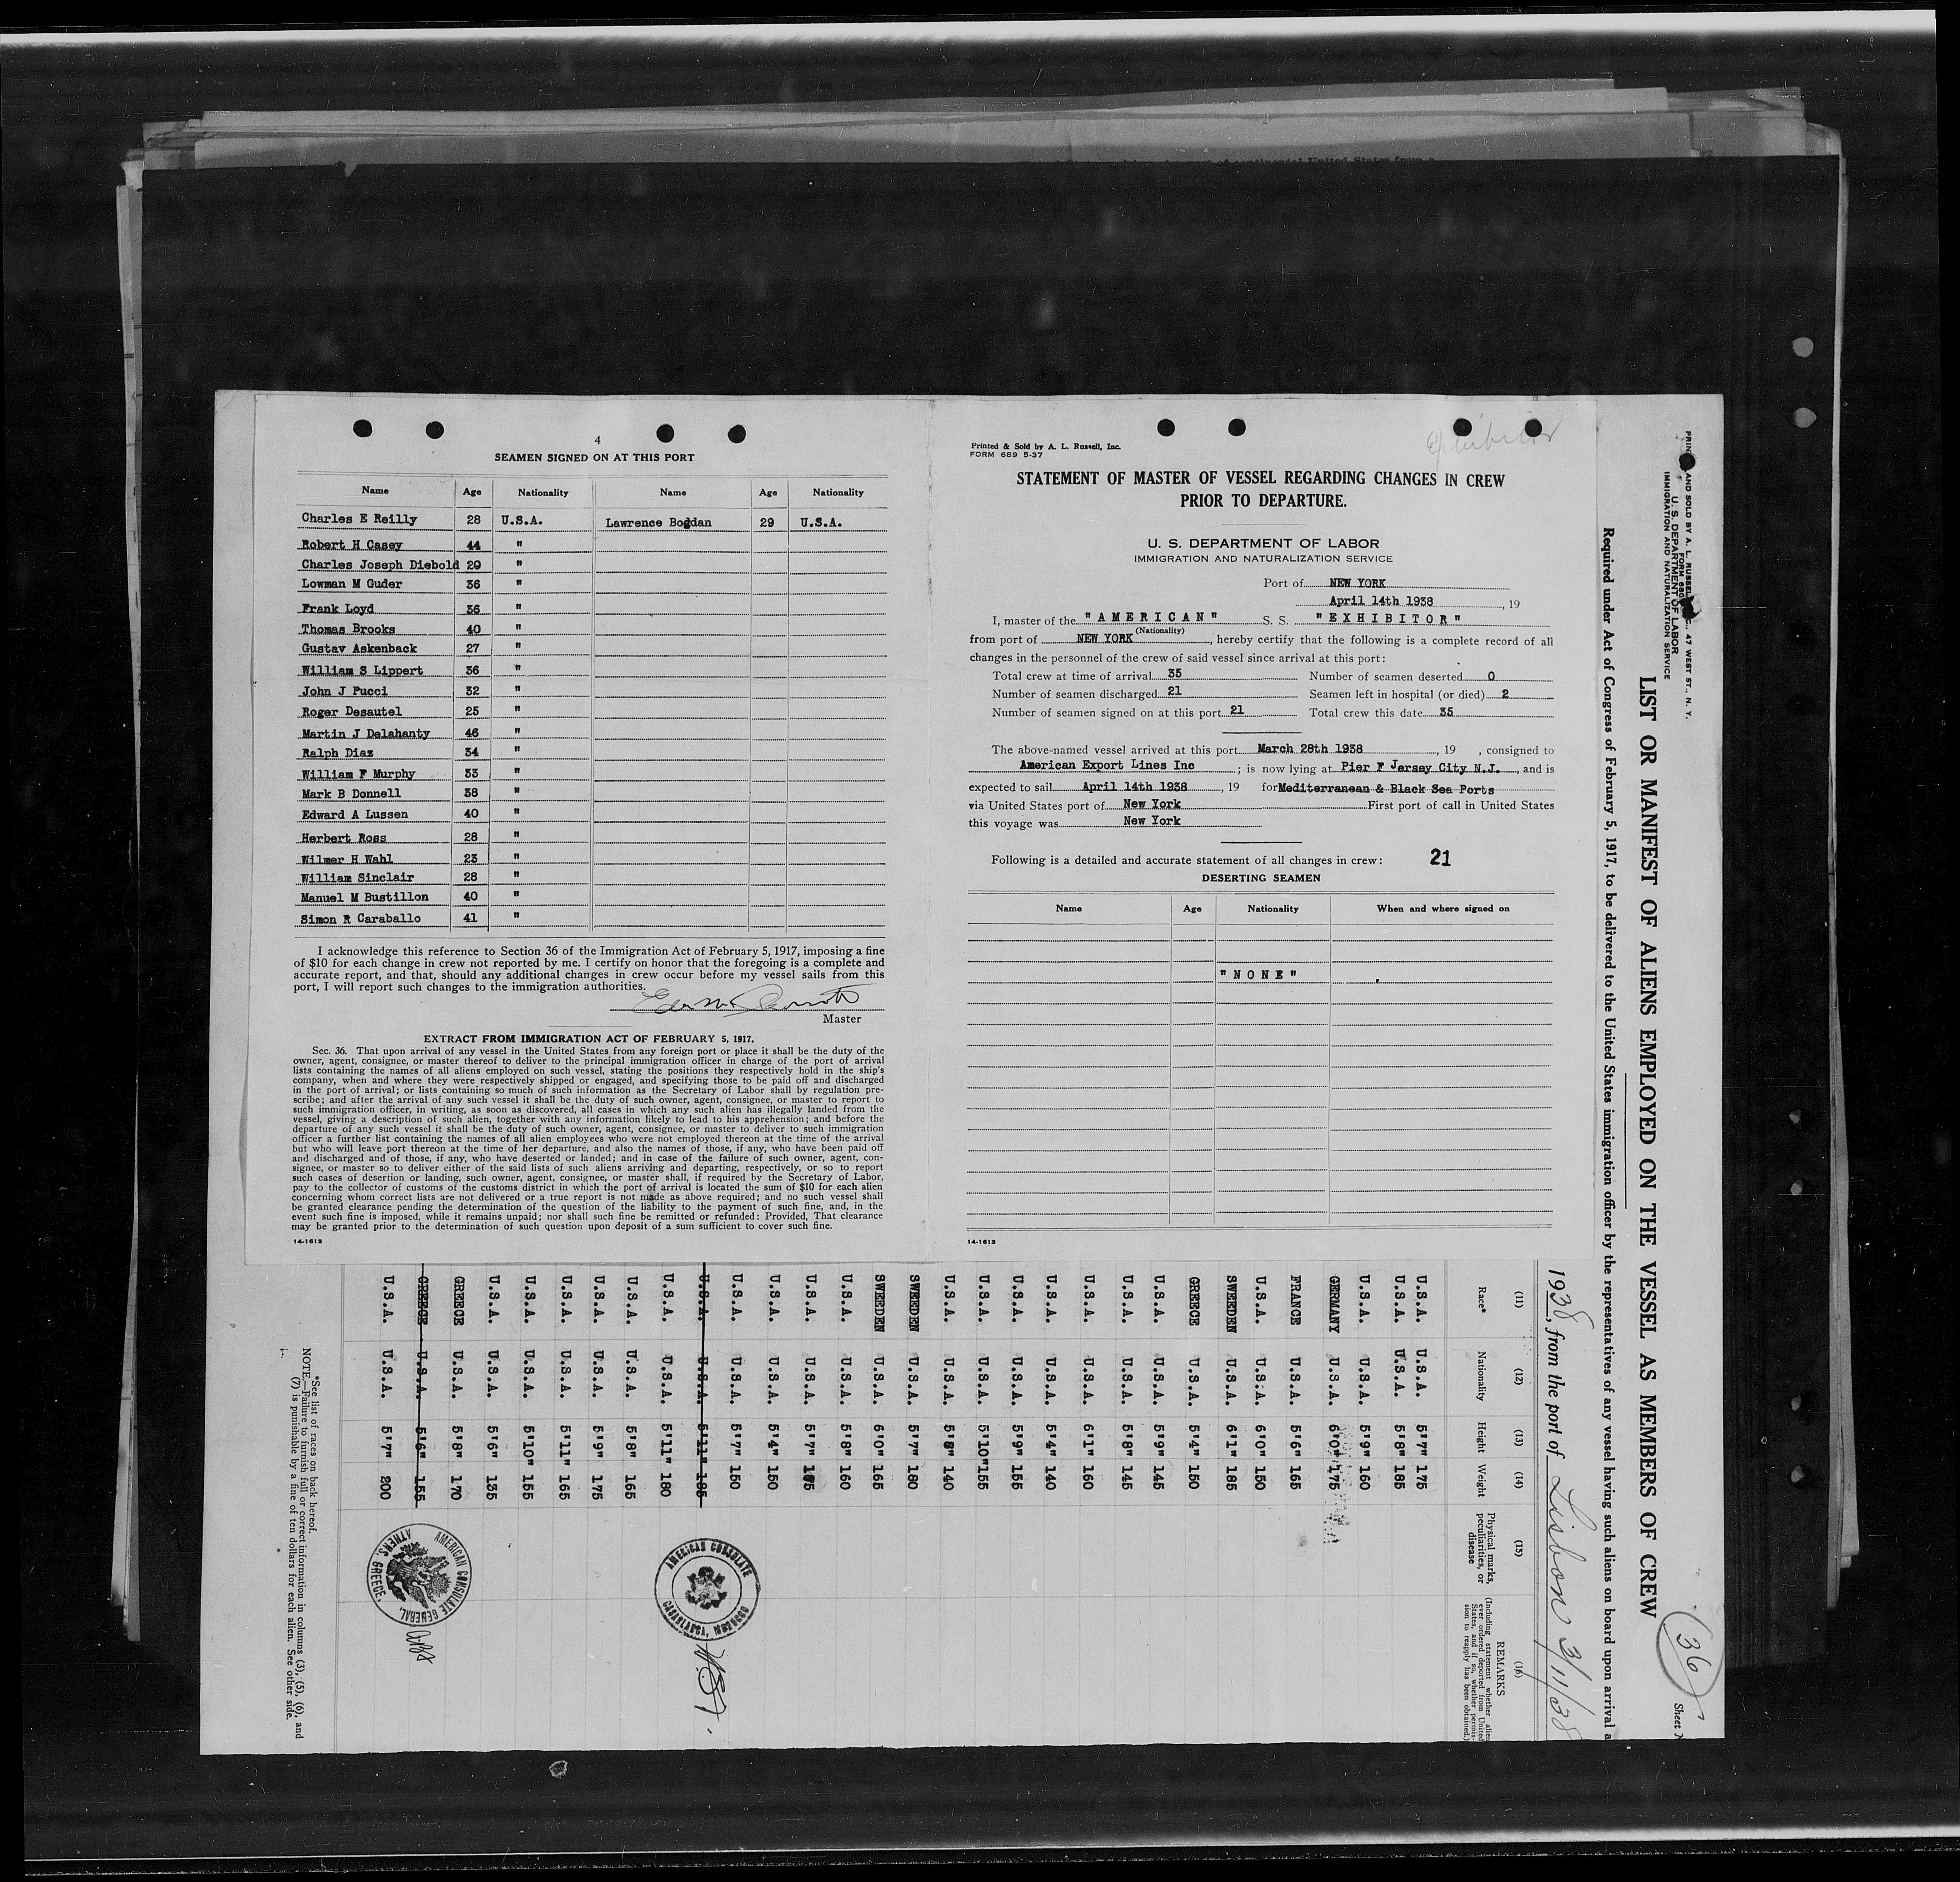 4
SEAMEN SIGNED ON AT THIS PORT
Name Age Nationality Name Age Nationality
Charles E Reilly 28 U.S.A. Lawrence Bogdan 29 U.S.A.
Robert H Casey 44 "
Charles Joseph Diebold 29 "
Lowman M Guder 36 "
Frank Loyd 36 "
Thomas Brooks 40 "
Gustav Askenback 27 "
William S Lippert 36 "
John J Pucci 32 "
Roger Desautel 25 "
Martin J Delahanty 46 "
Ralph Diaz 34 "
William F Murphy 33 "
Mark B Donnell 38 "
Edward A Lussen 40 "
Herbert Ross 28 "
Wilmer H Wahl 23 "
William Sinclair 28 "
Manuel M Bustillon 40 "
Simon R Caraballo 41 "
I acknowledge this reference to Section 36 of the Immigration Act of February 5, 1917, imposing a fine
of $10 for each change in crew not reported by me. I certify on honor that the foregoing is a complete and
accurate report, and that, should any additional changes in crew occur before my vessel sails from this
port, I will report such changes to the immigration authorities.
Master
EXTRACT FROM IMMIGRATION ACT OF FEBRUARY 5, 1917.
Sec. 36. That upon arrival of any vessel in the United States from any foreign port or place it shall be the duty of the
owner, agent, consignee, or master thereof to deliver to the principal immigration officer in charge of the port of arrival
lists containing the names of all aliens employed on such vessel, stating the positions they respectively hold in the ship's
company, when and where they were respectively shipped or engaged, and specifying those to be paid off and discharged
in the port of arrival; or lists containing so much of such information as the Secretary of Labor shall by regulation pre-
scribe; and after the arrival of any such vessel it shall be the duty of such owner, agent, consignee, or master to report to
such immigration officer, in writing, as soon as discovered, all cases in which any such alien has illegally landed from the
vessel, giving a description of such alien, together with any information likely to lead to his apprehension; and before the
departure of any such vessel it shall be the duty of such owner, agent, consignee, or master to deliver to such immigration
officer a further list containing the names of all alien employees who were not employed thereon at the time of the arrival
but who will leave port thereon at the time of her departure, and also the names of those, if any, who have been paid off
and discharged and of those, if any, who have deserted or landed; and in case of the failure of such owner, agent, con-
signee, or master so to deliver either of the said lists of such aliens arriving and departing, respectively, or so to report
such cases of desertion or landing, such owner, agent, consignee, or master shall, if required by the Secretary of Labor,
pay to the collector of customs of the customs district in which the port of arrival is located the sum of $10 for each alien
concerning whom correct lists are not delivered or a true report is not made as above required; and no such vessel shall
be granted clearance pending the determination of the question of the liability to the payment of such fine, and, in the
event such fine is imposed, while it remains unpaid; nor shall such fine be remitted or refunded: Provided, That clearance
may be granted prior to the determination of such question upon deposit of a sum sufficient to cover such fine.
14-1613
Exhibitor
Printed & Sold by A. L. Russell, Inc.
FORM 689 5-37
STATEMENT OF MASTER OF VESSEL REGARDING CHANGES IN CREW
PRIOR TO DEPARTURE.
U. S. DEPARTMENT OF LABOR
IMMIGRATION AND NATURALIZATION SERVICE
Port of NEW YORK
April 14th 1938, 19
I, master of the "AMERICAN" S. S. "EXHIBITOR"
(Nationality)
from port of NEW YORK, hereby certify that the following is a complete record of all
changes in the personnel of the crew of said vessel since arrival at this port:
Total crew at time of arrival 35 Number of seamen deserted 0
Number of seamen discharged 21 Seamen left in hospital (or died) 2
Number of seamen signed on at this port 21 Total crew this date 35
The above-named vessel arrived at this port March 28th 1938, 19 , consigned to
American Export Lines Inc ; is now lying at Pier F Jersey City N.J., and is
expected to sail April 14th 1938, 19 for Mediterranean & Black Sea Ports
via United States port of New York First port of call in United States
this voyage was New York
Following is a detailed and accurate statement of all changes in crew: 21
DESERTING SEAMEN
Name Age Nationality When and where signed on
"NONE"
14-1613
36
Sheet
AND SOLD BY A. L. RUSSELL, INC., 47 WEST ST., N. Y.
FORM 680
U. S. DEPARTMENT OF LABOR
IMMIGRATION AND NATURALIZATION SERVICE
LIST OR MANIFEST OF ALIENS EMPLOYED ON THE VESSEL AS MEMBERS OF CREW
Required under Act of Congress of February 5, 1917, to be delivered to the United States immigration officer by the representatives of any vessel having such aliens on board upon arrival a
1938, from the port of Lisbon 3/11/38
(11) (12) (13) (14) (15) (16)
Race* Nationality Height Weight Physical marks, peculiarities, or disease REMARKS
(Including statement whether alien
ever ordered deported from United
States, and if so, whether permis-
sion to reapply has been obtained.)
U.S.A. U.S.A. 5'7" 175
U.S.A. U.S.A. 5'8" 185
U.S.A. U.S.A. 5'9" 160
GERMANY U.S.A. 6'0" 175
FRANCE U.S.A. 5'6" 165
U.S.A. U.S.A. 6'0" 150
SWEEDEN U.S.A. 6'1" 185
GREECE U.S.A. 5'4" 150
U.S.A. U.S.A. 5'9" 145
U.S.A. U.S.A. 5'8" 145
U.S.A. U.S.A. 6'1" 160
U.S.A. U.S.A. 5'4" 140
U.S.A. U.S.A. 5'9" 155
U.S.A. U.S.A. 5'10" 155
U.S.A. U.S.A. 5'8" 140
SWEEDEN U.S.A. 5'7" 180
SWEEDEN U.S.A. 6'0" 165
U.S.A. U.S.A. 5'8" 160
U.S.A. U.S.A. 5'7" 175
U.S.A. U.S.A. 5'4" 150
U.S.A. U.S.A. 5'7" 150
U.S.A. U.S.A. 5'11" 185
U.S.A. U.S.A. 5'11" 180
U.S.A. U.S.A. 5'8" 165
U.S.A. U.S.A. 5'9" 175
U.S.A. U.S.A. 5'11" 165
U.S.A. U.S.A. 5'10" 155
U.S.A. U.S.A. 5'6" 135
GREECE U.S.A. 5'8" 170
GREECE U.S.A. 5'6" 155
U.S.A. U.S.A. 5'7" 200
AMERICAN CONSULATE
CASABLANCA, MOROCCO
AMERICAN CONSULATE GENERAL,
ATHENS, GREECE.
*See list of races on back hereof.
NOTE.—Failure to furnish full or correct information in columns (3), (5), (6), and
(7) is punishable by a fine of ten dollars for each alien. See other side.